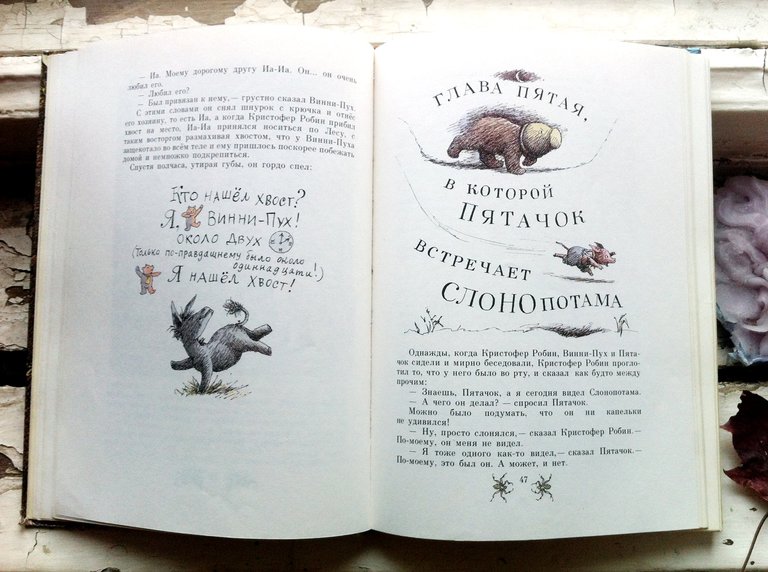 — Иа. Моему дорогому другу Иа-Иа. Он... он очень
любил его.
— Любил его?
— Был привязан к нему,— грустно сказал Винни-Пух.
С этими словами он снял шнурок с крючка и отнёс
его хозяину, то есть Иа, а когда Кристофер Робин прибил
хвост на место, Иа-Иа принялся носиться по Лесу, с
таким восторгом размахивая хвостом, что у Винни-Пуха
защекотало во всём теле и ему пришлось поскорее побежать
домой и немножко подкрепиться.
Спустя полчаса, утирая губы, он гордо спел:
Кто нашёл хвост?
Я, Винни-Пух!
около двух
(Только по-правдашнему было около
одиннадцати!)
Я нашёл хвост!
ГЛАВА ПЯТАЯ,
В КОТОРОЙ
ПЯТАЧОК
ВСТРЕЧАЕТ
СЛОНОПОТАМА
Однажды, когда Кристофер Робин, Винни-Пух и Пята-
чок сидели и мирно беседовали, Кристофер Робин прогло-
тил то, что у него было во рту, и сказал как будто между
прочим:
— Знаешь, Пятачок, а я сегодня видел Слонопотама.
— А чего он делал? — спросил Пятачок.
Можно было подумать, что он ни капельки
не удивился!
— Ну, просто слонялся,— сказал Кристофер Робин.—
По-моему, он меня не видел.
— Я тоже одного как-то видел,— сказал Пятачок.—
По-моему, это был он. А может, и нет.
47